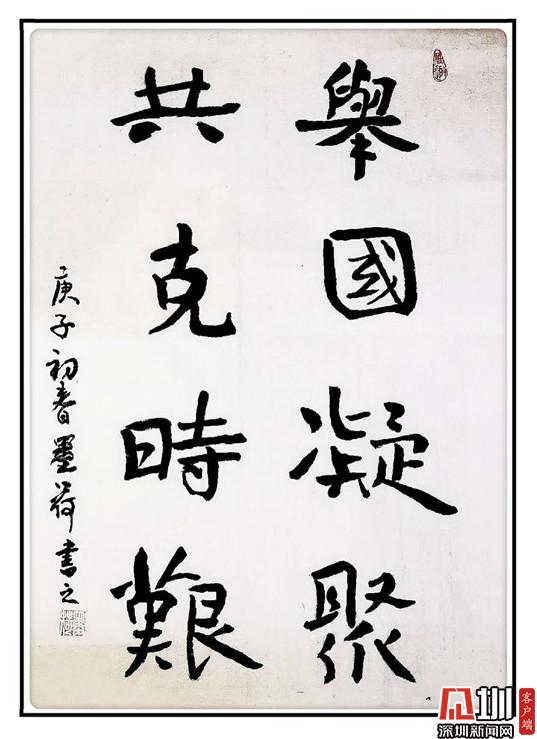 舉國凝聚
共克時艱
庚子初春墨荷書之
深圳新闻网
客户端